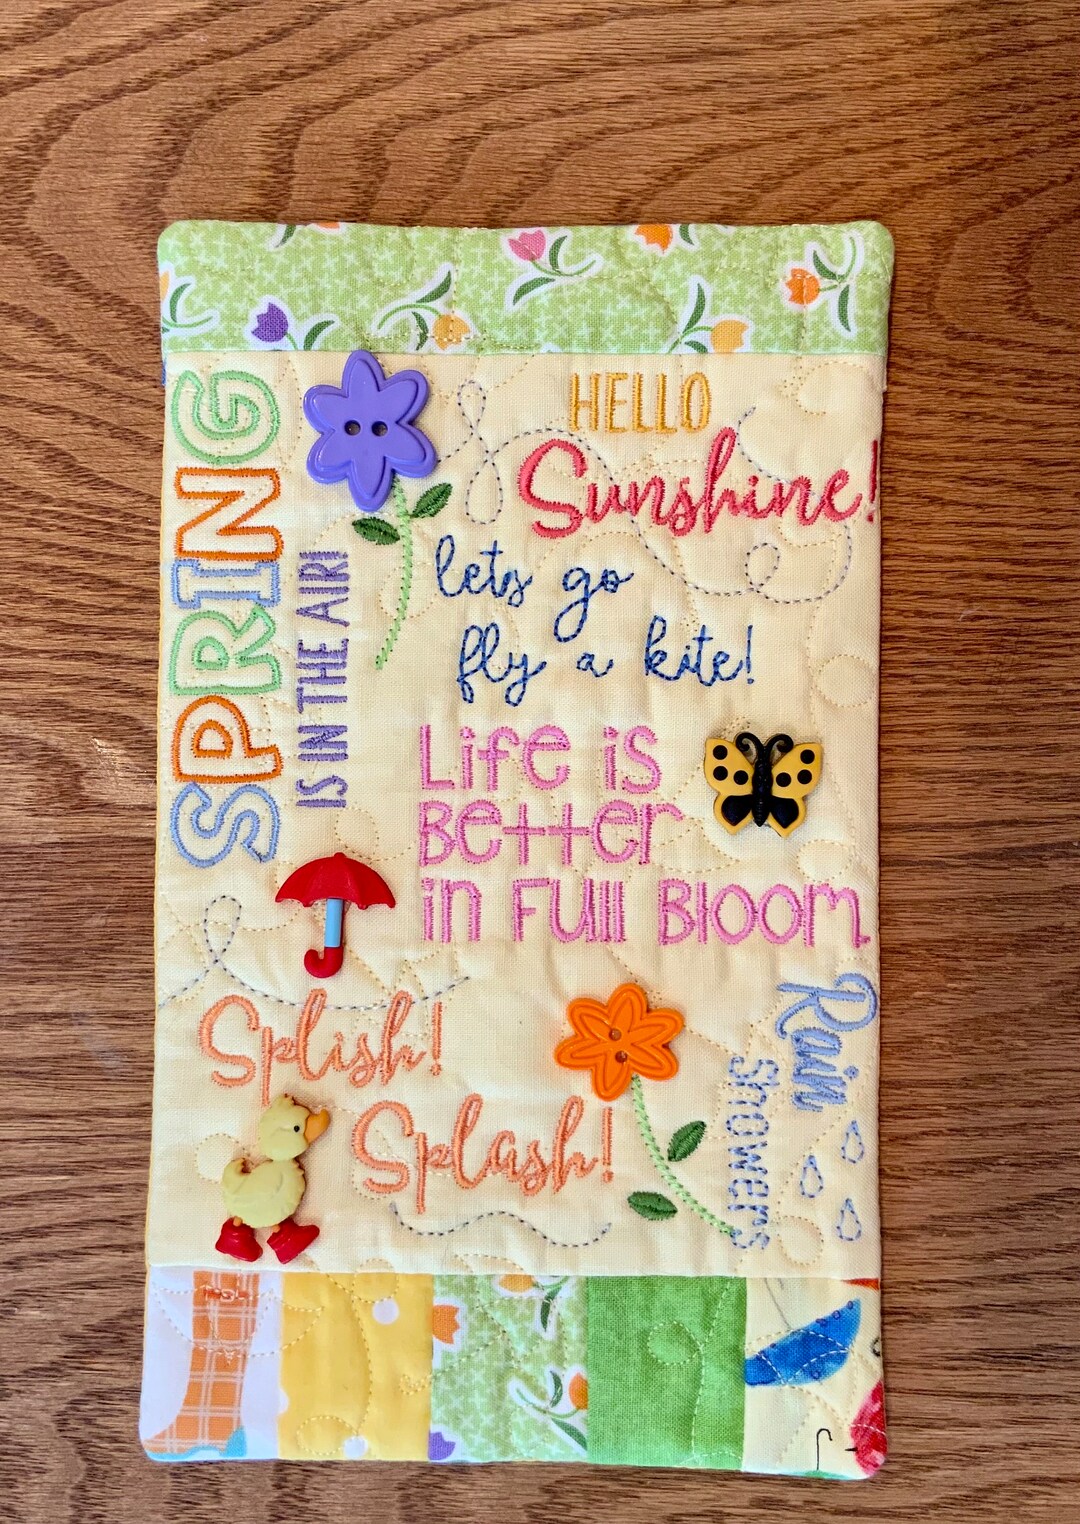 SPRING
IS IN THE AIR!
HELLO
Sunshine!
lets go
fly a kite!
Life is
Better
in Full Bloom
Splish!
Splash!
Rain
Showers